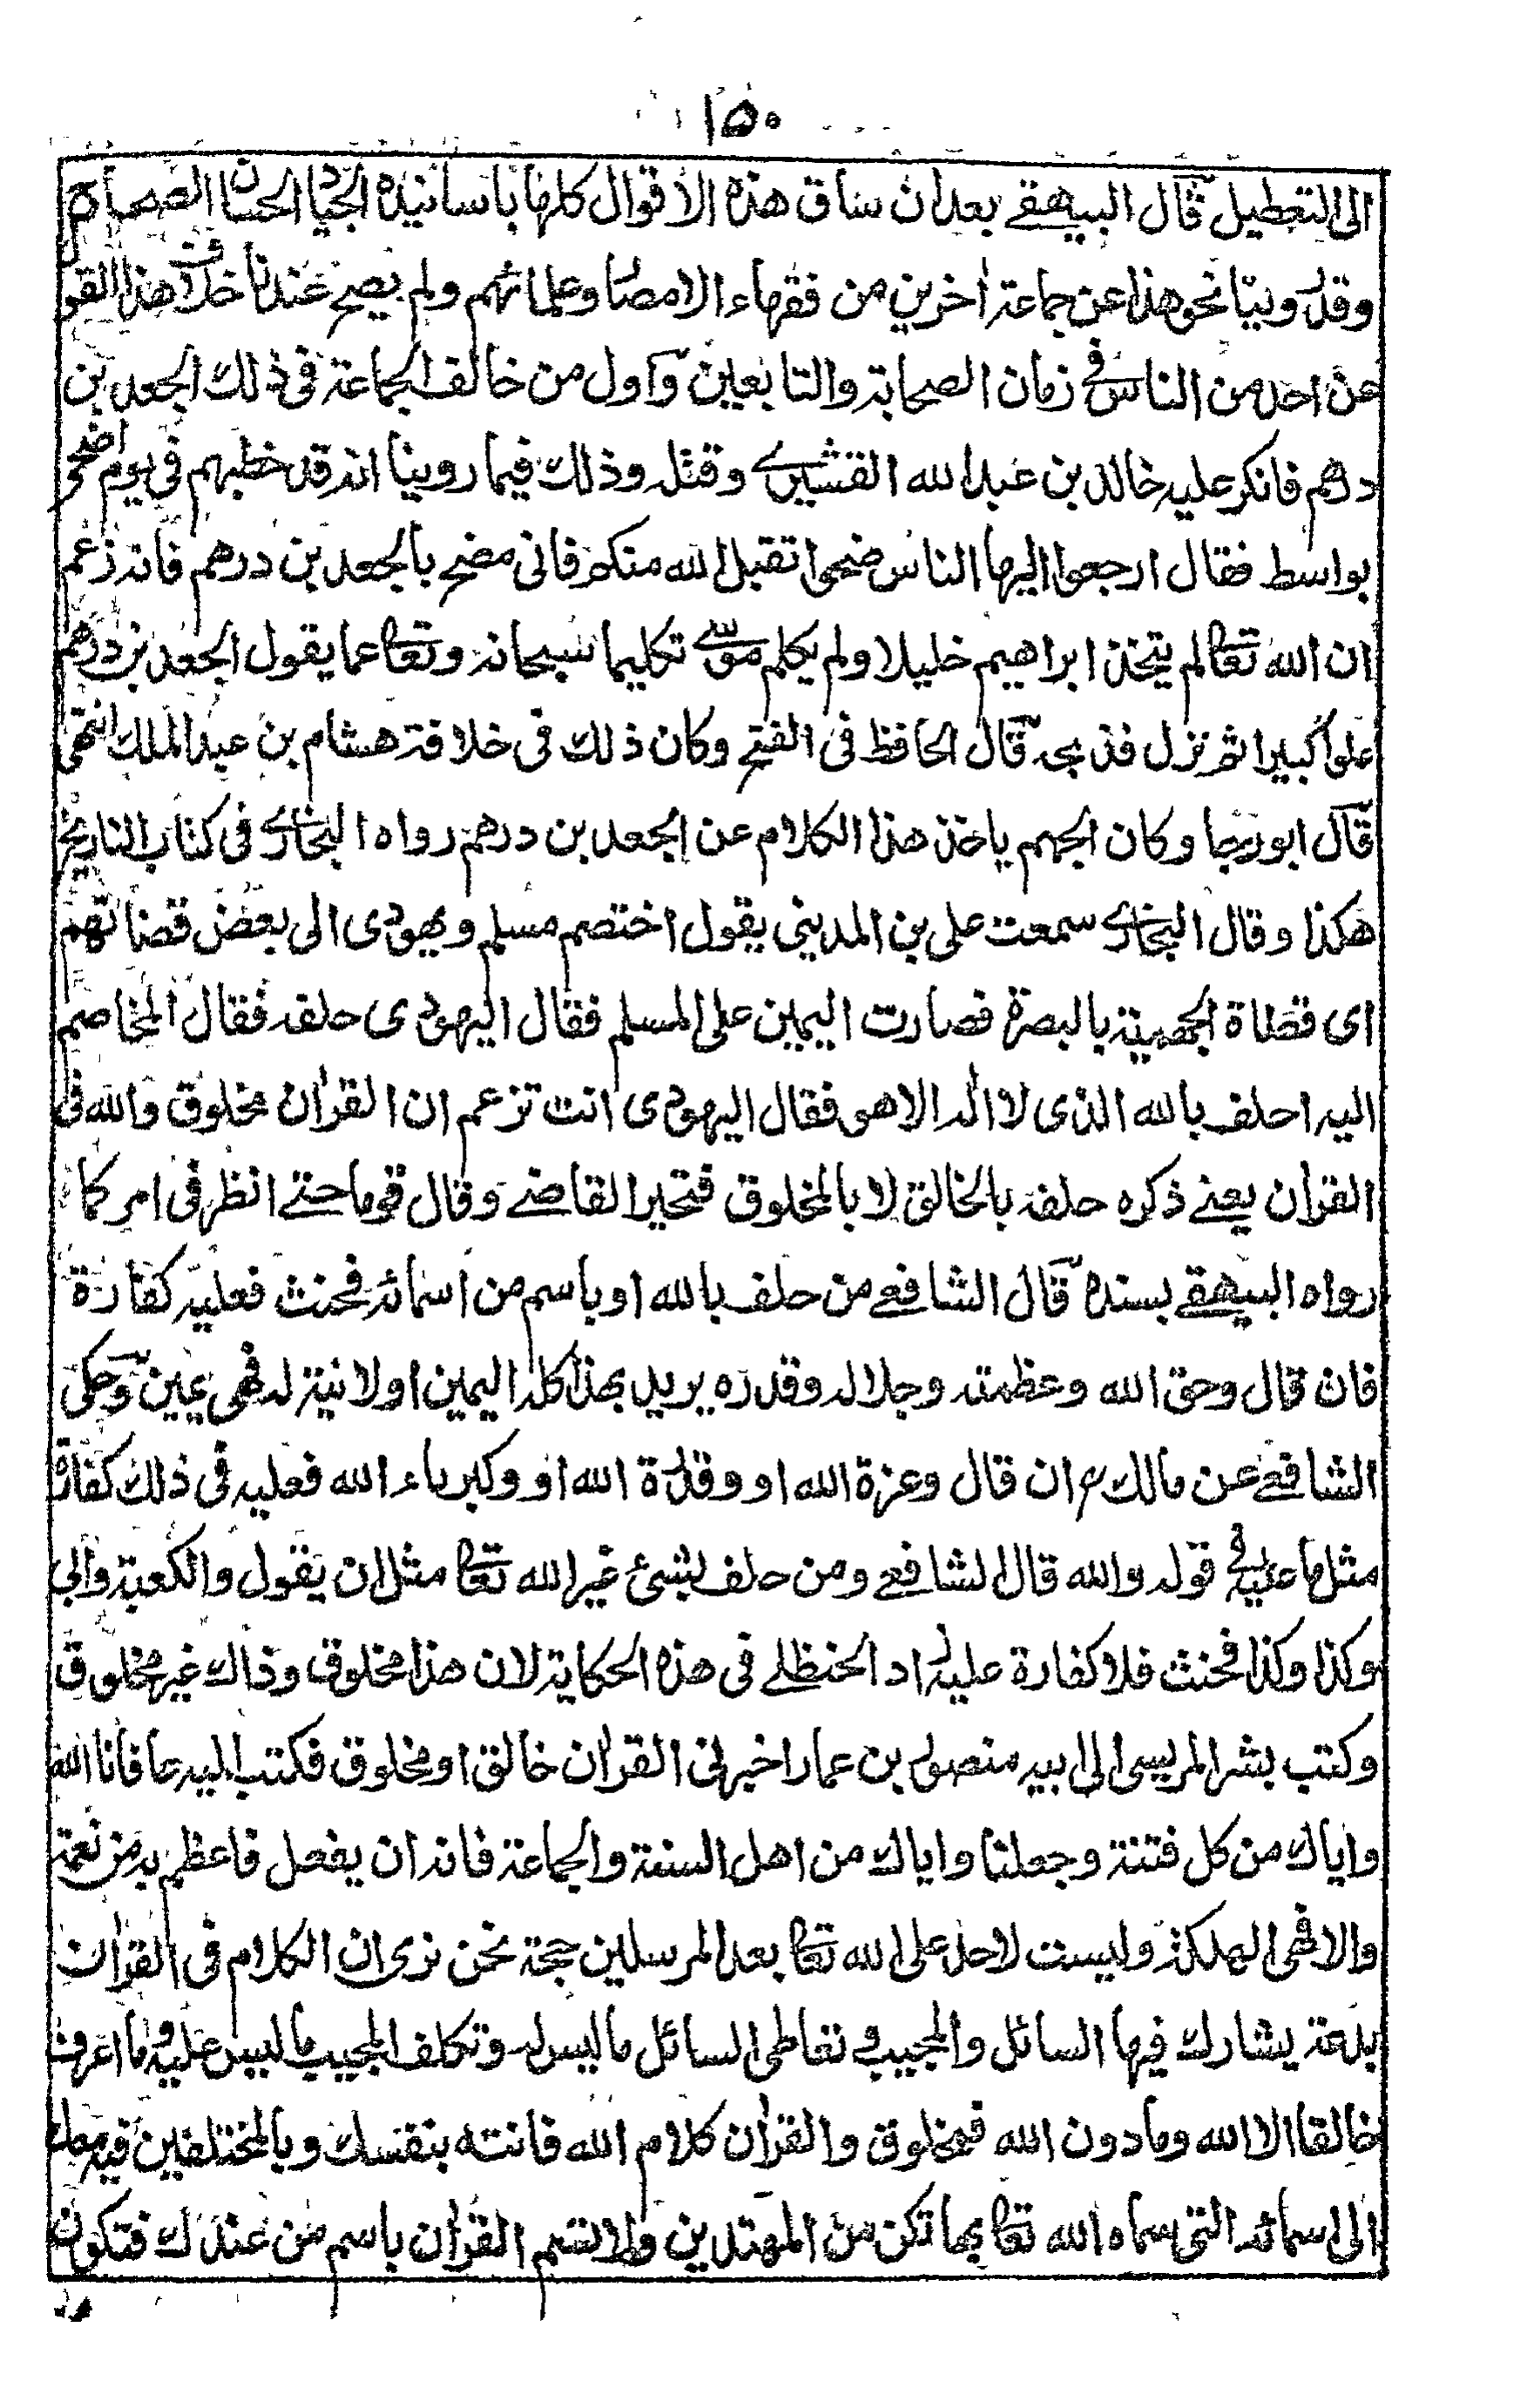 ١٥٠
الى التعطيل قال البيهقے بعد ان ساق هذه الاقوال كلها باسانيده الجياد الحسان الصحاح
وقد روينا نحو هذا عن جماعة اخرين من فقهاء الامصار وعلمائهم ولم يصح عندنا خلاف هذا القول
عن احد من الناس فے زمان الصحابة والتابعين واول من خالف الجماعة فى ذلك الجعد بن
درهم فانكر عليه خالد بن عبد الله القشيرے وقتله وذلك فيما روينا انه قد خطبهم فى يوم اضحى
بواسط فقال ارجعوا ايها الناس ضحوا تقبل الله منكم فانى مضح بالجعد بن درهم فانه زعم
ان الله تعالم يتخذ ابراهيم خليلا ولم يكلم موسے تكليما سبحانه وتعا عما يقول الجعد بن درهم
علوا كبيرا ثم نزل فذبحه قال الحافظ فى الفتح وكان ذلك فى خلافة هشام بن عبد الملك انتهى
قال ابو رجا وكان الجهم ياخذ هذا الكلام عن الجعد بن درهم رواه البخارے فى كتاب التاريخ
هكذا وقال البخارے سمعت على بن المدينى يقول اختصم مسلم ويهودى الى بعض قضاتهم
اى قضاة الجهمية بالبصرة فصارت اليمين على المسلم فقال اليهودى حلفه فقال المخاصم
اليه احلف بالله الذى لا اله الا هو فقال اليهودى انت تزعم ان القران مخلوق والله فى
القران يعنے ذكره حلفه بالخالق لا بالمخلوق فتحير القاضے وقال قوما حتے انظر فى امركما
رواه البيهقے بسنده قال الشافعے من حلف بالله او باسم من اسمائه فحنث فعليه كفارة
فان قال وحق الله وعظمته وجلاله وقدره يريد بهذا كله اليمين او لا نية له فهى يمين وحكى
الشافعے عن مالك ان قال وعزة الله او وقدرة الله او وكبرياء الله فعليه فى ذلك كفارة
مثل ما عليه فے قوله والله قال الشافعے ومن حلف بشئ غير الله تعا مثل ان يقول والكعبة وابى
وكذا وكذا فحنث فلا كفارة عليه زاد الحنظلے فى هذه الحكاية لان هذا مخلوق وذاك غير مخلوق
وكتب بشر المريسى الى ابيه منصور بن عمار اخبرنى القران خالق او مخلوق فكتب اليه عافانا الله
واياك من كل فتنة وجعلنا واياك من اهل السنة والجماعة فانه ان يفعل فاعظم به من نعمة
والا فهى الهلكة وليست لاحد على الله تعا بعد المرسلين حجة نحن نرى ان الكلام فى القران
بدعة يشارك فيها السائل والمجيب فے تعاطى السائل ما ليس له وتكلف المجيب ما ليس عليه وما اعرف
خالقا الا الله وما دون الله فمخلوق والقران كلام الله فانته بنفسك وبالمختلفين فيه معك
الى اسمائه التى سماه الله تعا بها تكن من المهتدين ولا تسم القران باسم من عندك فتكون